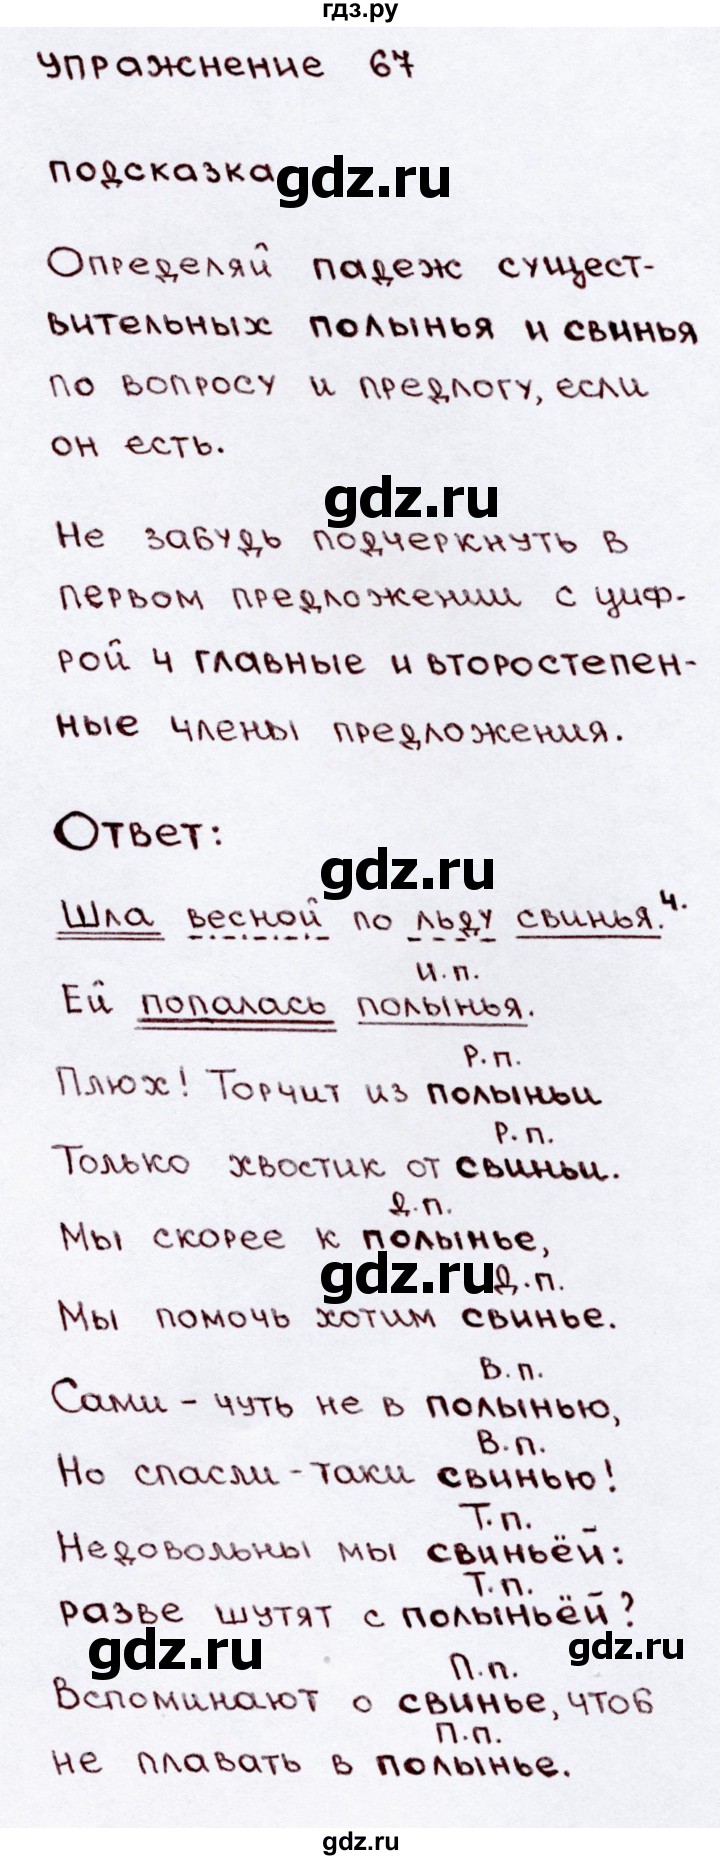 гдз.ру
Упражнение 67
подсказка
gdz.ru
Определяй падеж сущест-
вительных полынья и свинья
по вопросу и предлогу, если
он есть.
gdz.ru
Не забудь подчеркнуть в
первом предложении с циф-
рой 4 главные и второстепен-
ные члены предложения.
Ответ:
gdz.ru
Шла весной по льду свинья.4.
И.п.
Ей попалась полынья.
Р.п.
Плюх! Торчит из полыньи
Р.п.
Только хвостик от свиньи.
Д.п.
Мы скорее к полынье,
gdz.ru Д.п.
Мы помочь хотим свинье.
В.п.
Сами - чуть не в полынью,
В.п.
Но спасли-таки свинью!
Т.п.
Недовольны мы свиньёй:
Т.п.
разве шутят с полыньёй?
gdz.ru gdz.ru
П.п.
Вспоминают о свинье, чтоб
П.п.
не плавать в полынье.
gdz.ru